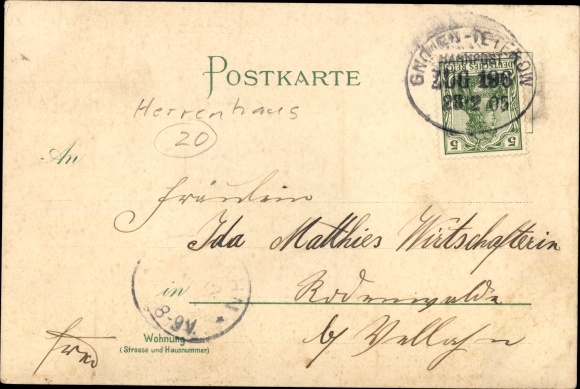 GNOIEN-TETEROW
BAHNPOST
ZUG 196
28 12 05
DEUTSCHES REICH
5 5
POSTKARTE
Herrenhaus
20
An
Fräulein
Ida Matthies Wirtschafterin
in Rodenwalde
b/ Vellahn
8-9V.
Wohnung
(Strasse und Hausnummer)
frei